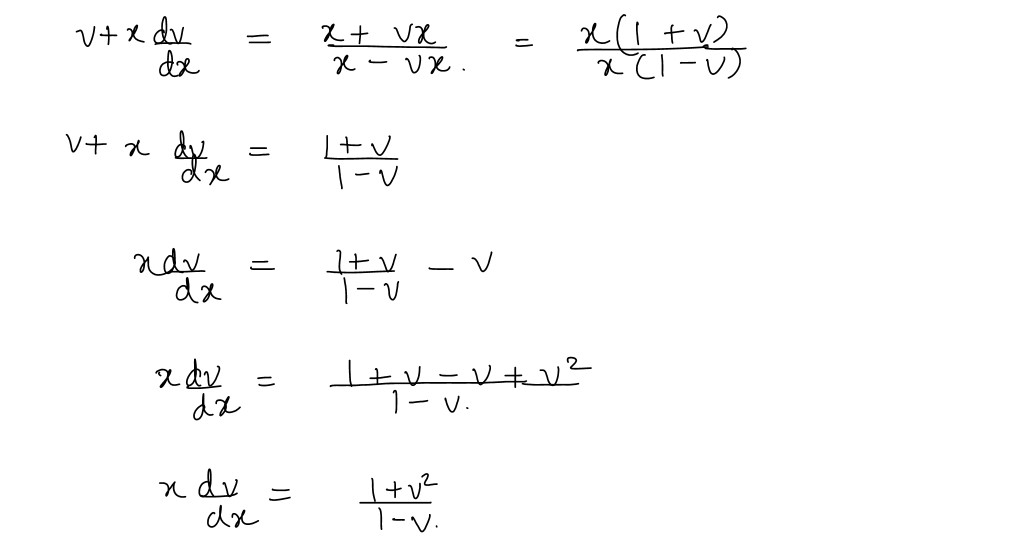 v + x dv/dx = (x + vx)/(x - vx). = x(1 + v)/x(1 - v)
v + x dv/dx = (1 + v)/(1 - v)
x dv/dx = (1 + v)/(1 - v) - v
x dv/dx = (1 + v - v + v²)/(1 - v).
x dv/dx = (1 + v²)/(1 - v).